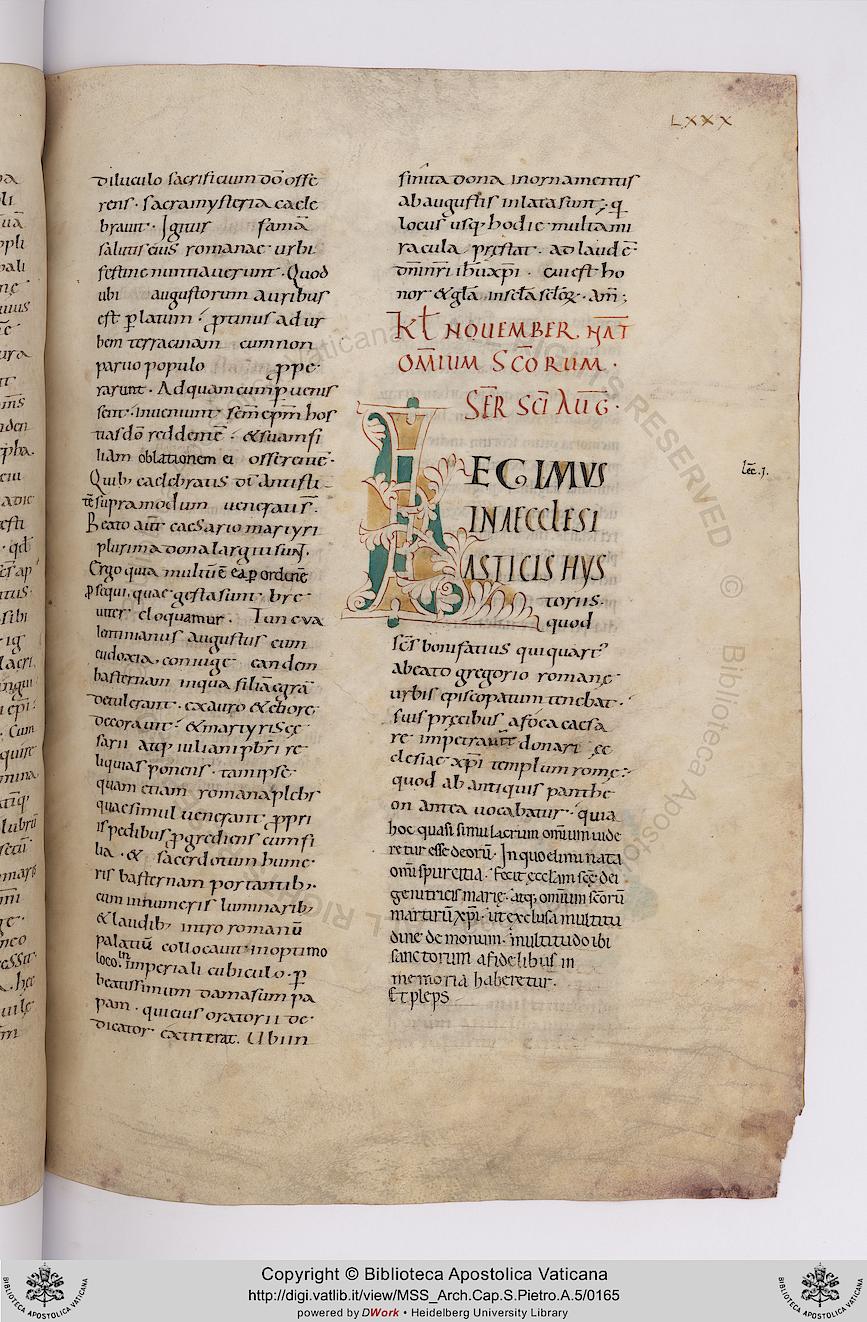 LXXX
diluculo sacrificium dō offe
rens · sacra mysteria caele
braret · Igitur famā
salutis eius romanae urbi
festine nuntiaverunt · Quod
ubi augustorum auribus
est ꝑlatum · ꝓtinus ad ur
bem terracinam cum non
parvo populo ꝓpe
rarunt · Ad quam cum ꝑvenis
sent · invenunt sc̄m ep̄m hos
tias dō reddentē · & suam fi
liam oblationem ei offerentē ·
Quib; caelebratis dī antisti
tē supra modum venerati s̄ ·
Beato aūt caesario martyri
plurima dona largiti sunt ·
Ergo quia multū ē ea ꝑ ordinē
ꝑsequi, quae gesta sunt bre
viter eloquamur · Tunc va
lentinianus augustus cum
eudoxia, coniuge eandem
basternam in qua filiā egrā
detulerant · ex auro & ebore
decoravit · & martyris cę
sarii atq; iuliani pb̄ri re
liquias ponens · tam ipse
quam etiam romana plebs
quae simul venerant · ꝓpri
is pedibus ꝓgrediens cum fi
lia · & sacerdotum hume
ris basternam portantib; ·
cum innumeris luminarib;
& laudib; intro romanū
palatiū collocavit in optimo
loco · in imperiali cubiculo · ꝑ
beatissimum damasum pa
pam · qui eius oratorii de
dicator extiterat. Ubi in
finita dona in ornamentis
ab augustis inlata sunt · q̄
locus usq; hodie multa mi
racula pręstat · ad laudē
dn̄i nr̄i ih̄u xp̄i · cui est ho
nor & gl̄a in sc̄la sc̄lor̄ · am̄ ;
Kł NOVEMBER. NAT
OM̄IUM SC̄ORUM ·
SER̄ SC̄I AUG̅ ·
LEGIMUS
lēc · i ·
IN AECCLESI
ASTICIS HYS
toriis ·
quod
sc̄s bonifatius qui quart᾽
a beato gregorio romanę
urbis episcopatum tenebat ·
suis pręcibus a fóca caesa
re impetravit donari ęc
clesiae xp̄i templum romę ·
quod ab antiquis panthe
on antea vocabatur · quia
hoc quasi simulacrum om̄ium vide
retur esse deorū · In quo eliminata
om̄i spurcitia · Fecit ęcc̄lam sc̄ę dei
genitricis marię · atq; omnium sc̄orū
martirū xp̄i · ut exclusa multitu
dine demonum · multitudo ibi
sanctorum a fidelibus in
memoria haberetur ·
Et pleps
Copyright © Biblioteca Apostolica Vaticana
http://digi.vatlib.it/view/MSS_Arch.Cap.S.Pietro.A.5/0165
powered by DWork • Heidelberg University Library